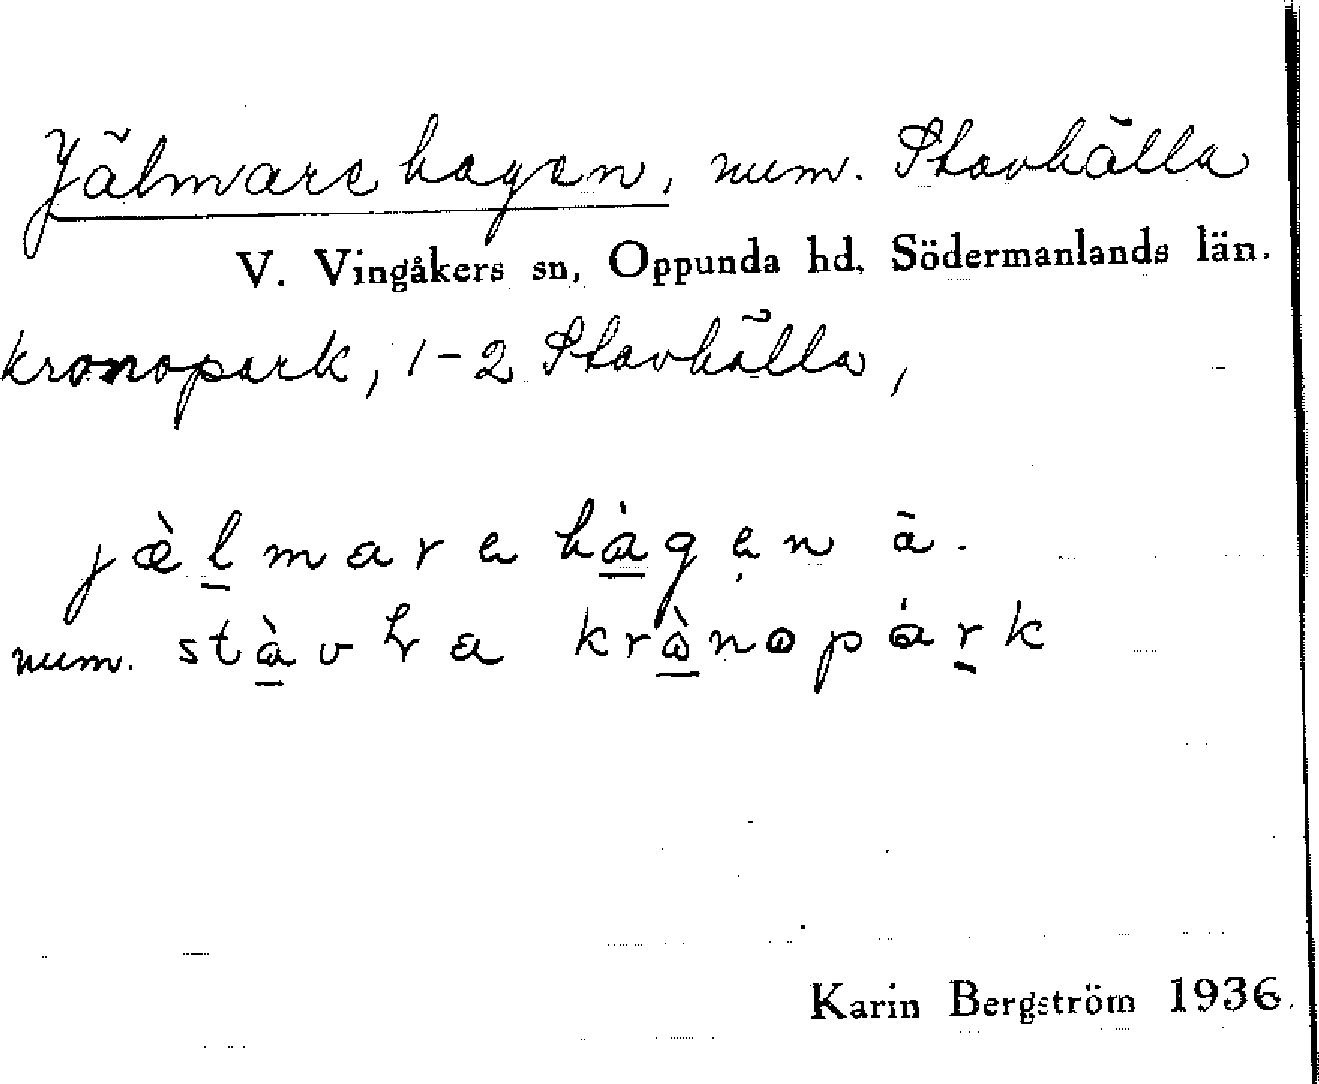 Jälmare hagen, num. Stavhälla
V. Vingåkers sn, Oppunda hd, Södermanlands län.
kronopark, 1-2 Stavhälla,
jæ̀l̠mare hà̠gẹn ā.
num. stà̠vɫa krà̠nopár̠k
Karin Bergström 1936.